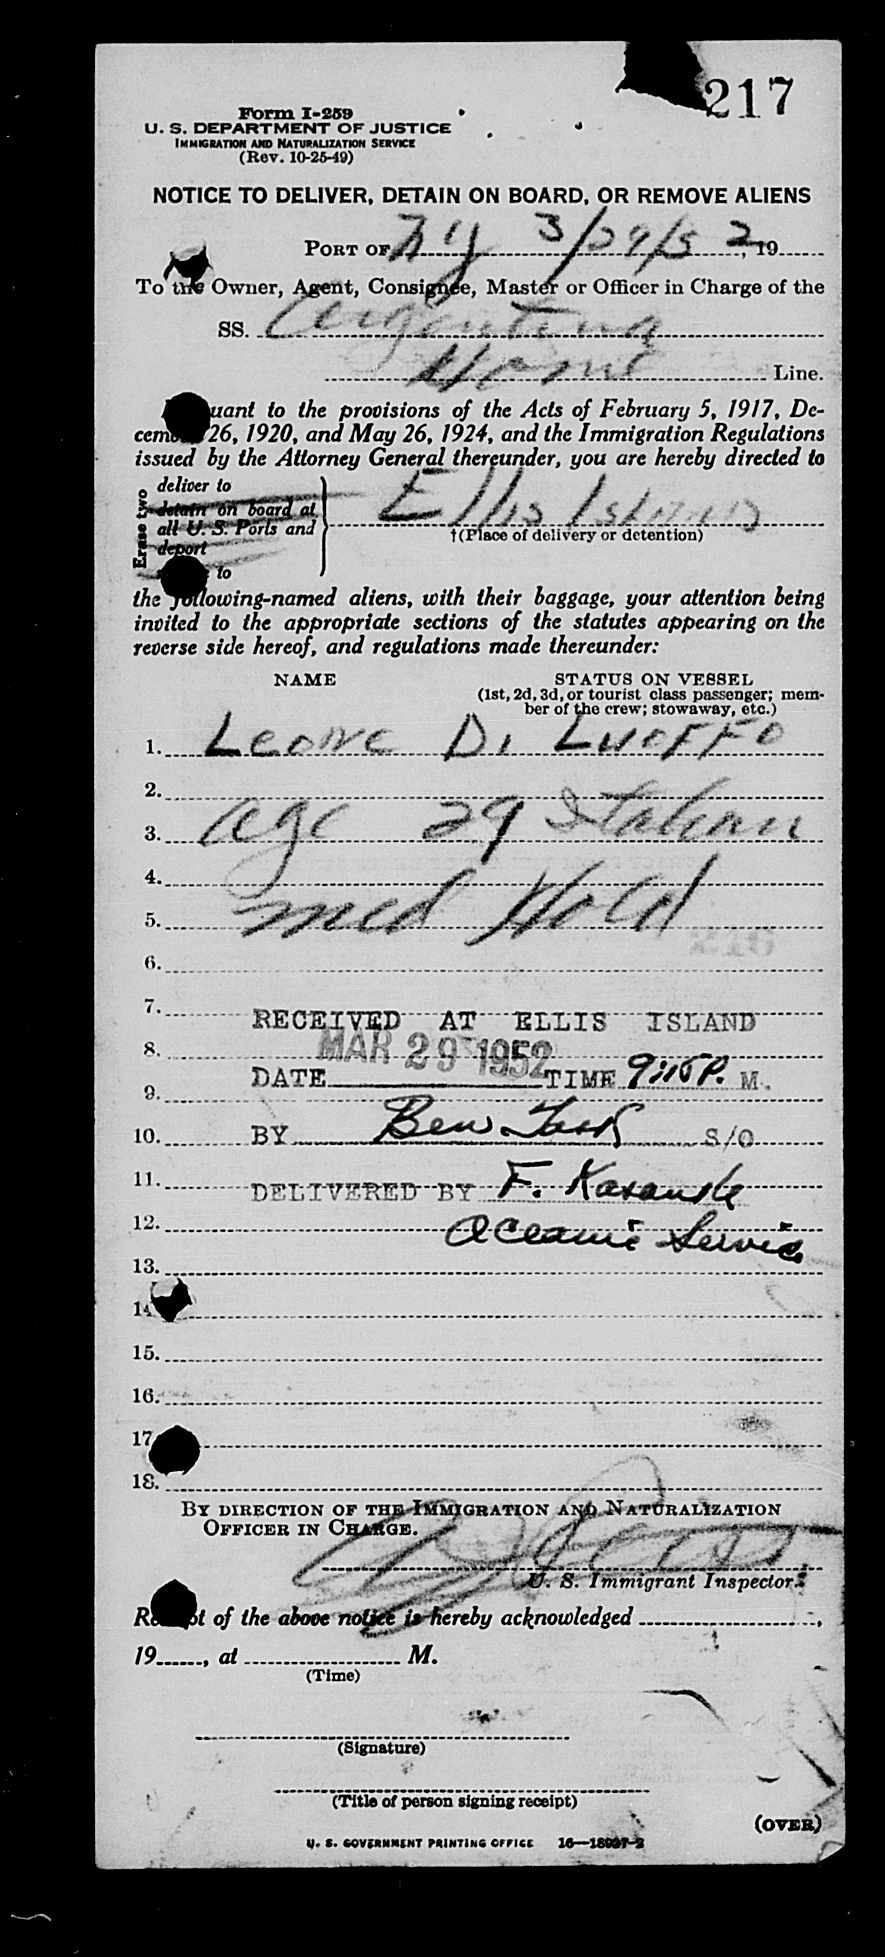 217
Form I-259
U. S. DEPARTMENT OF JUSTICE
IMMIGRATION AND NATURALIZATION SERVICE
(Rev. 10-25-49)
NOTICE TO DELIVER, DETAIN ON BOARD, OR REMOVE ALIENS
PORT OF NY 3/29/52, 19
To the Owner, Agent, Consignee, Master or Officer in Charge of the
SS. Argentina
Home Line.
uant to the provisions of the Acts of February 5, 1917, De-
cem 26, 1920, and May 26, 1924, and the Immigration Regulations
issued by the Attorney General thereunder, you are hereby directed to
Erase two
deliver to
detain on board at
all U. S. Ports and
deport
to
Ellis Island
†(Place of delivery or detention)
the following-named aliens, with their baggage, your attention being
invited to the appropriate sections of the statutes appearing on the
reverse side hereof, and regulations made thereunder:
NAME STATUS ON VESSEL
(1st, 2d, 3d, or tourist class passenger; mem-
ber of the crew; stowaway, etc.)
1. Leone Di Luoffo
2.
3. Age 29 Italian
4.
5. Med Hold
6.
7. RECEIVED AT ELLIS ISLAND
8. MAR 29 1952
DATE TIME 9:15 P. M.
9.
10. BY Ben S/O
11. DELIVERED BY F.
12. Oceanic Service
13.
14.
15.
16.
17.
18.
BY DIRECTION OF THE IMMIGRATION AND NATURALIZATION
OFFICER IN CHARGE.
U. S. Immigrant Inspector.
Receipt of the above notice is hereby acknowledged ,
19 , at M.
(Time)
(Signature)
(Title of person signing receipt)
(OVER)
U. S. GOVERNMENT PRINTING OFFICE 16—18937-2